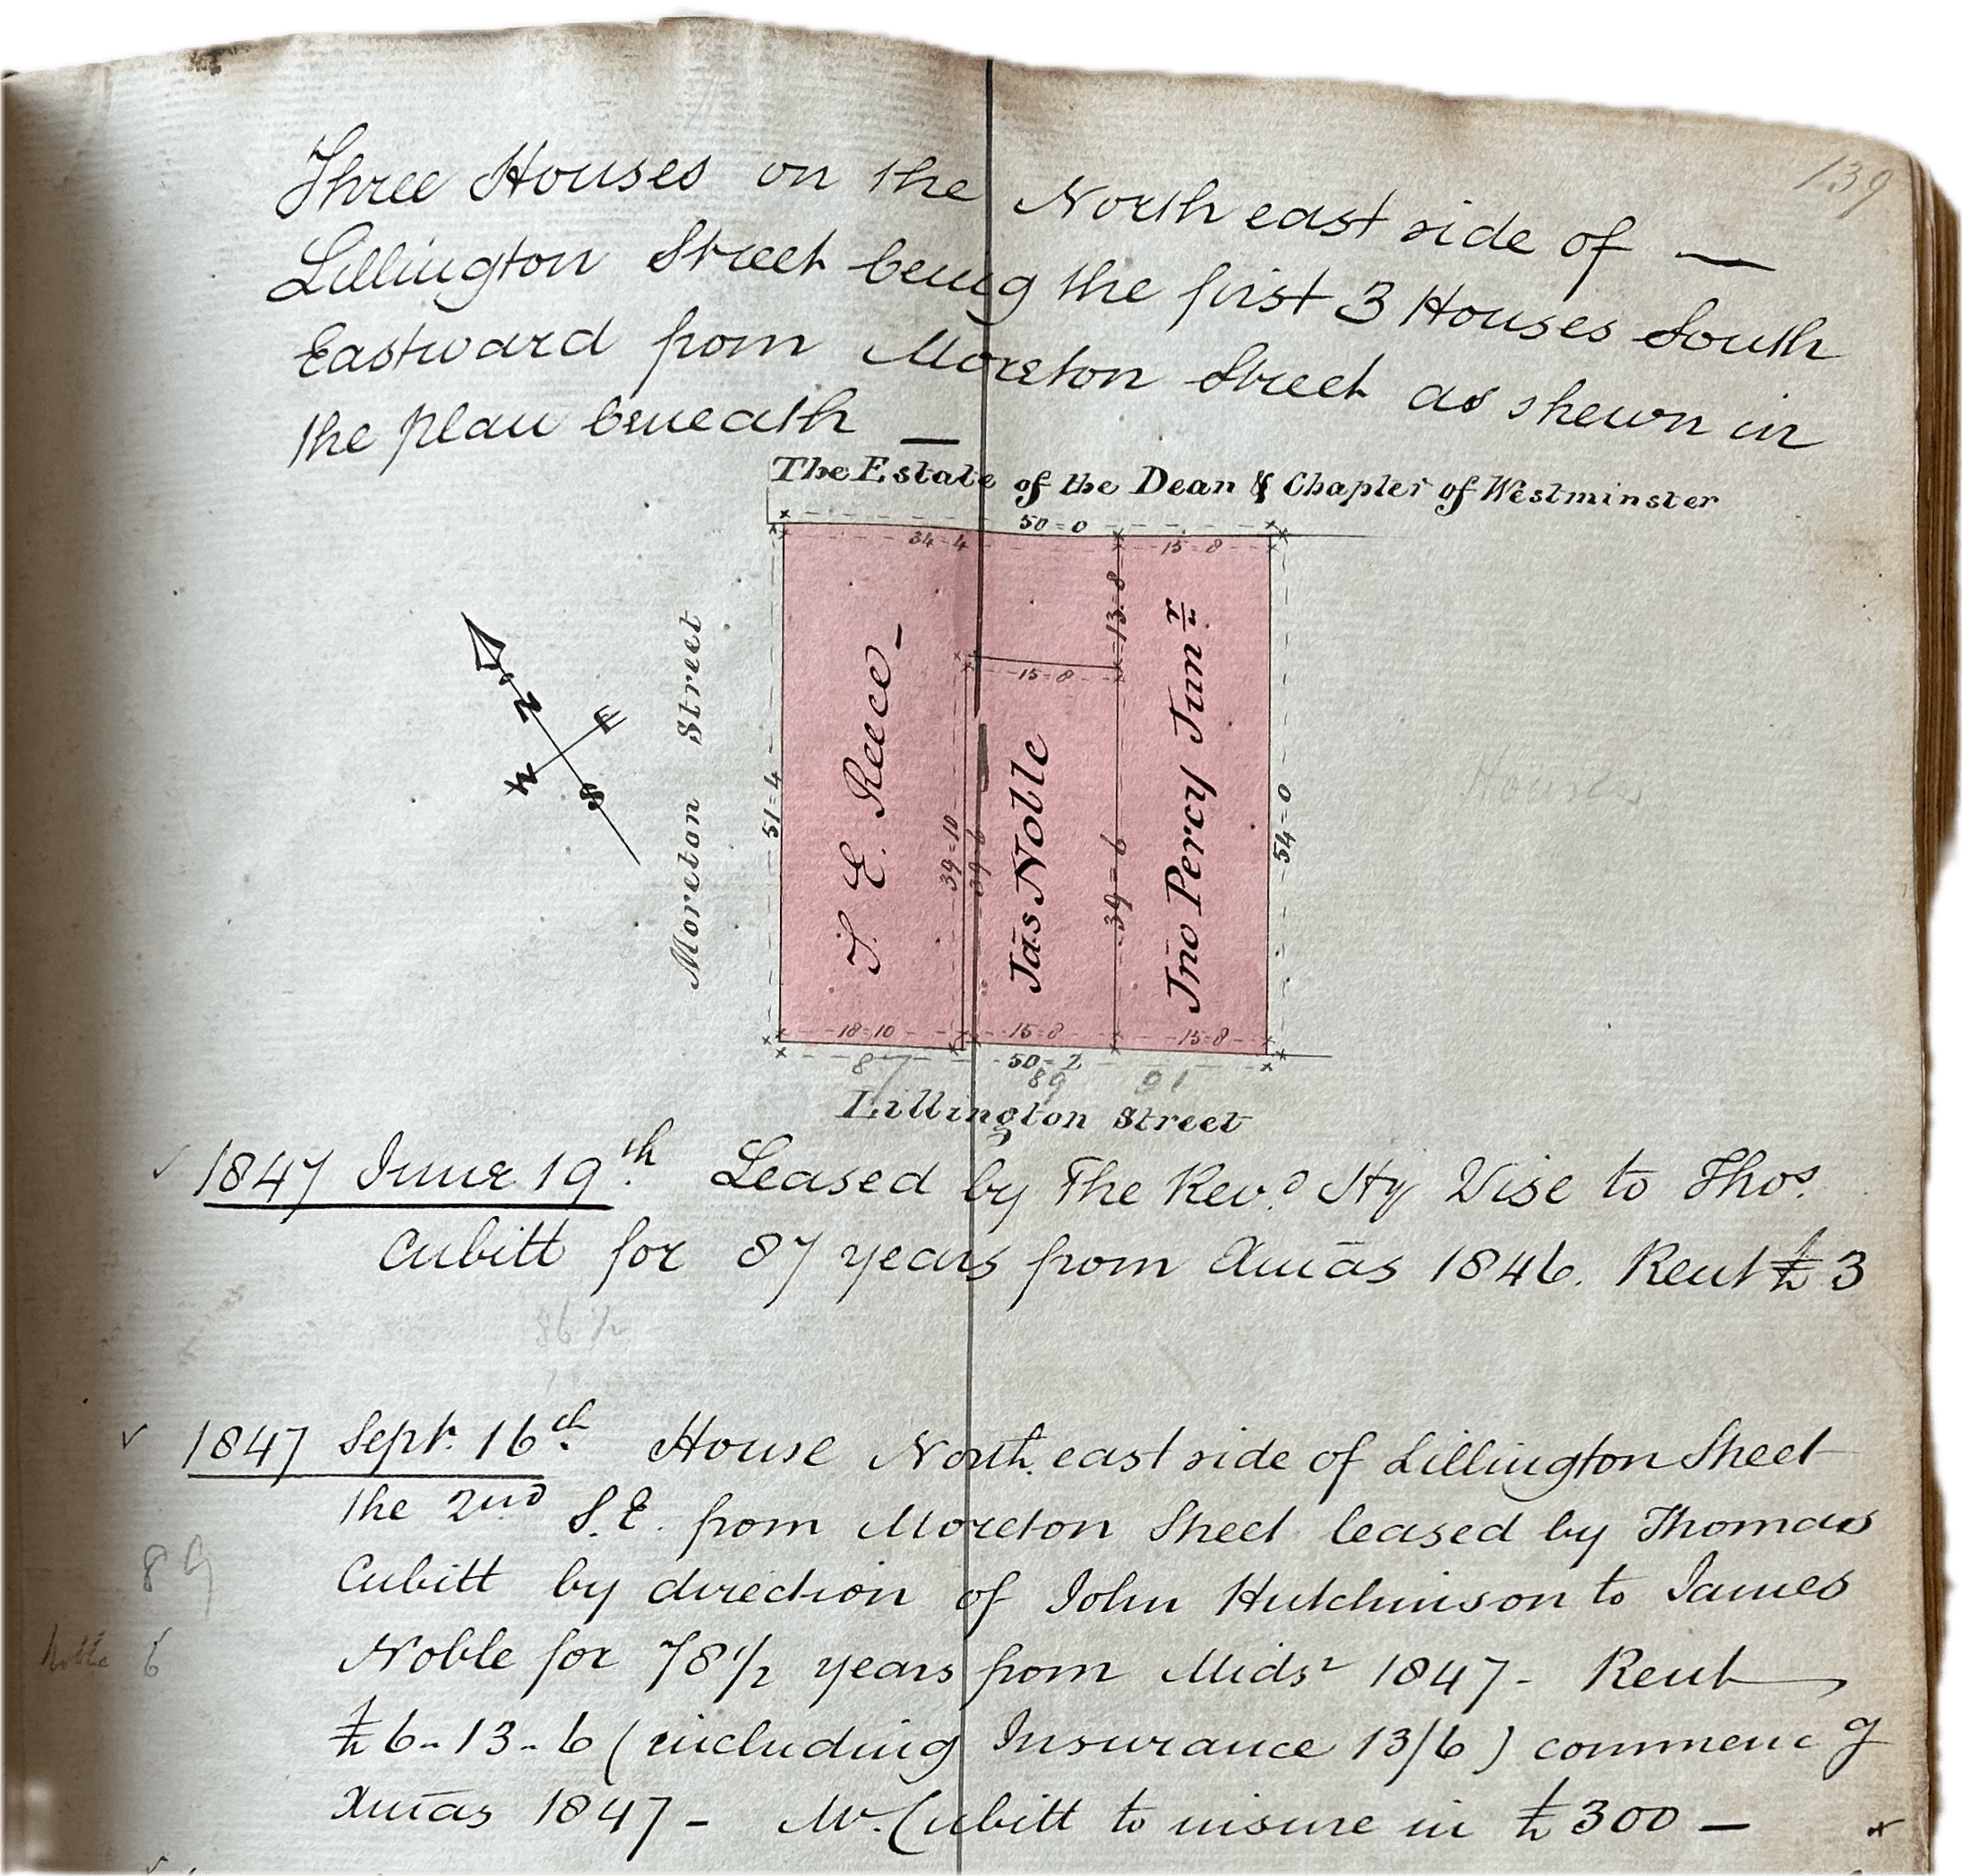 139
Three Houses on the North east side of —
Lillington Street being the first 3 Houses South
Eastward from Moreton Street as shewn in
the plan beneath —
The Estate of the Dean & Chapter of Westminster
50=0
34=4
15=8
13=8
15=8
N
E
W
S
Moreton Street
51=4
S. E. Reece –
39=10
39=6
Jas Noble
39=6
Jno Percy Junr
54=0
Houses
18=10
15=8
15=8
50=2
87
89
91
Lillington Street
✓ 1847 June 19th. Leased by The Revd. Hy Wise to Thos.
Cubitt for 87 years from Xmas 1846. Rent £3
86½
✓ 1847 Sept. 16th. House North east side of Lillington Street
the 2nd S.E. from Moreton Street leased by Thomas
89 Cubitt by direction of John Hutchinson to James
Noble 6 Noble for 78½ years from Midsr 1847 - Rent
£6-13-6 (including Insurance 13/6) commencg
Xmas 1847 - Mr. Cubitt to insure in £300 —